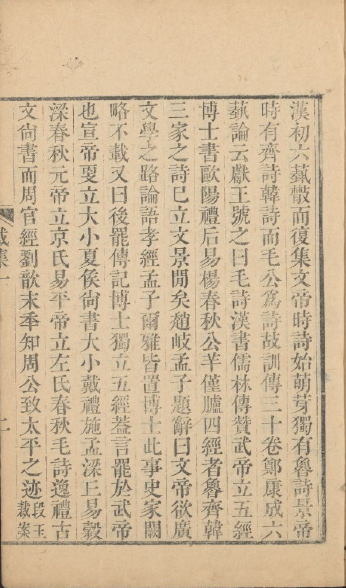 漢初六蓺𢿱而復集文帝時詩始萌芽獨有魯詩景帝
時有齊詩韓詩而毛公爲詩故訓傳三十卷鄭康成六
蓺論云獻王號之曰毛詩漢書儒林傳贊武帝立五經
博士書歐陽禮后易楊春秋公羊僅臚四經者魯齊韓
三家之詩已立文景閒矣趙岐孟子題辭曰文帝欲廣
文學之路論語孝經孟子爾雅皆置博士此事史家闕
略不載又曰後罷傳記博士獨立五經葢言罷於武帝
也宣帝𡕥立大小夏矦尙書大小戴禮施孟梁丘易穀
梁春秋元帝立京氏易平帝立左氏春秋毛詩逸禮古
文尙書而周官經劉歆末年知周公致太平之迹段玉
裁案
集一